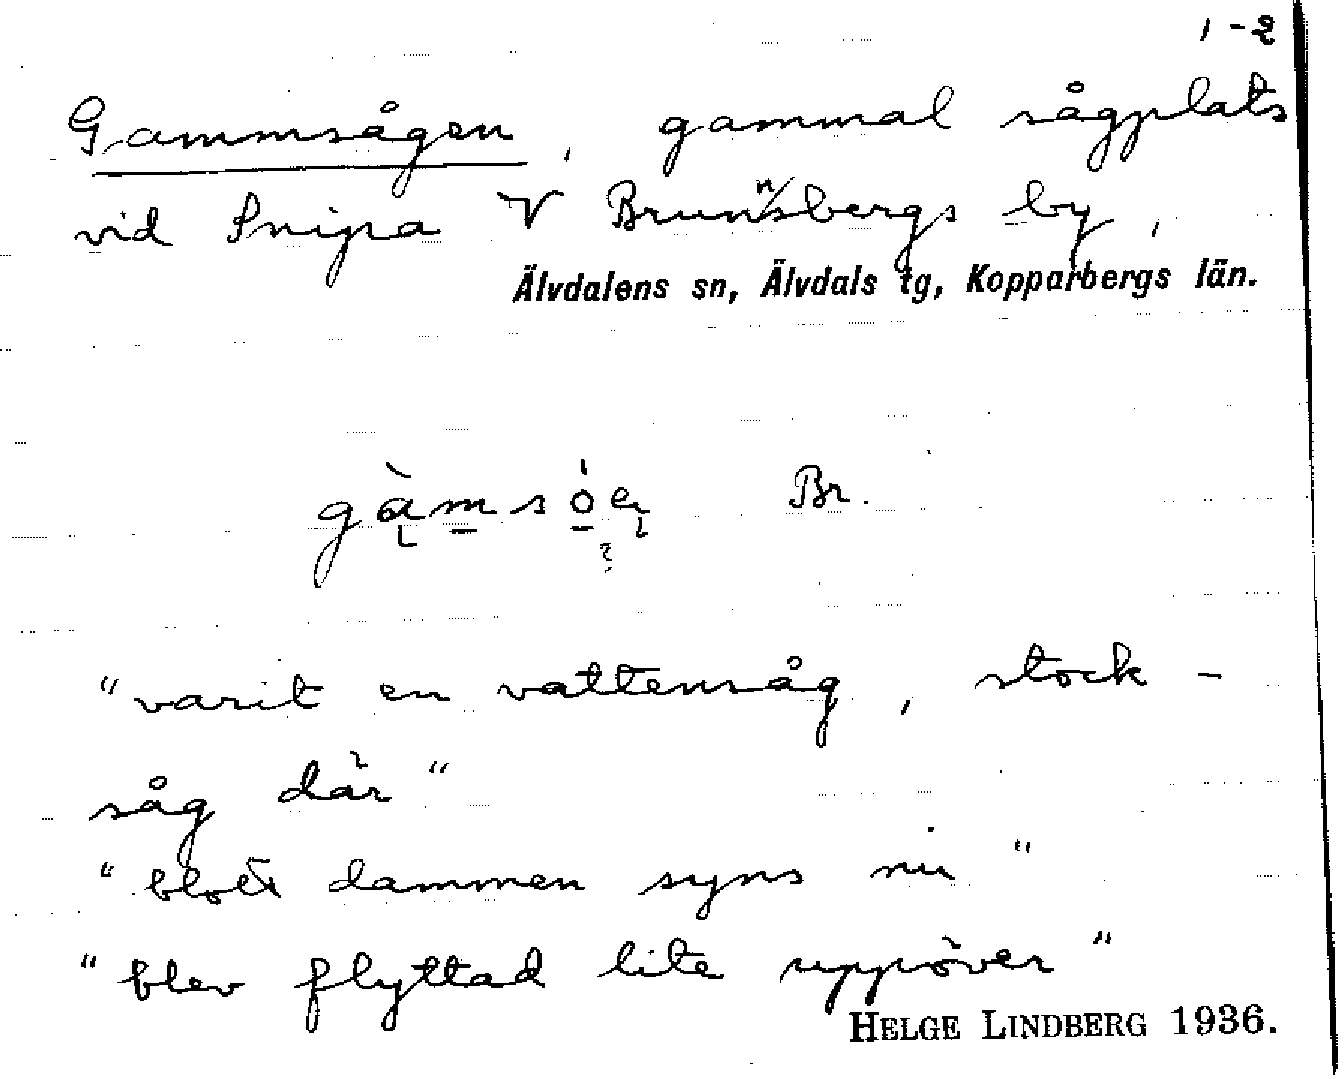 1-2
Gammsågen, gammal sågplats
vid Snipa V Brunnsbergs by,
Älvdalens sn, Älvdals tg, Kopparbergs län.
gàmsóe̢ Br.
"varit en vattensåg, stock-
såg där"
"blott dammen syns nu"
"blev flyttad lite uppöver"
HELGE LINDBERG 1936.